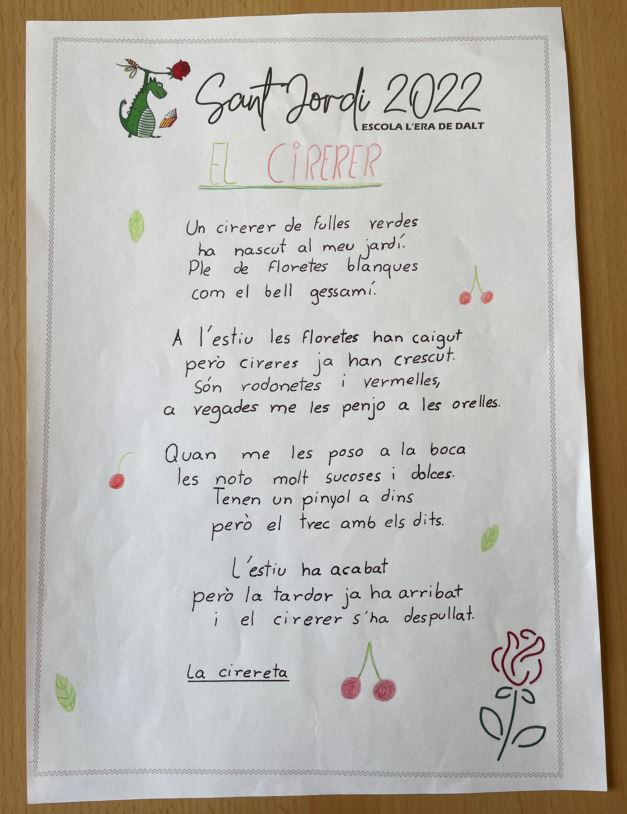 Sant Jordi 2022
ESCOLA L'ERA DE DALT
EL CIRERER
Un cirerer de fulles verdes
ha nascut al meu jardí.
Ple de floretes blanques
com el bell gessamí.
A l'estiu les floretes han caigut
però cireres ja han crescut.
Són rodonetes i vermelles,
a vegades me les penjo a les orelles.
Quan me les poso a la boca
les noto molt sucoses i dolces.
Tenen un pinyol a dins
però el trec amb els dits.
L'estiu ha acabat
però la tardor ja ha arribat
i el cirerer s'ha despullat.
La cirereta